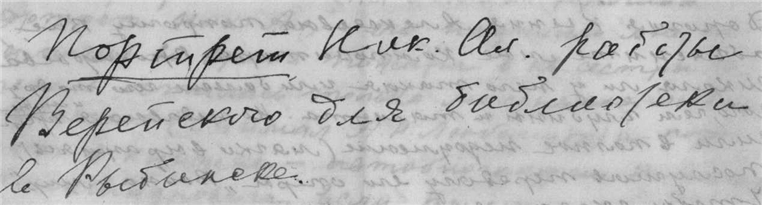 Портрет Ник. Ал. работы
Верейского для библиотеки
в Рыбинске.